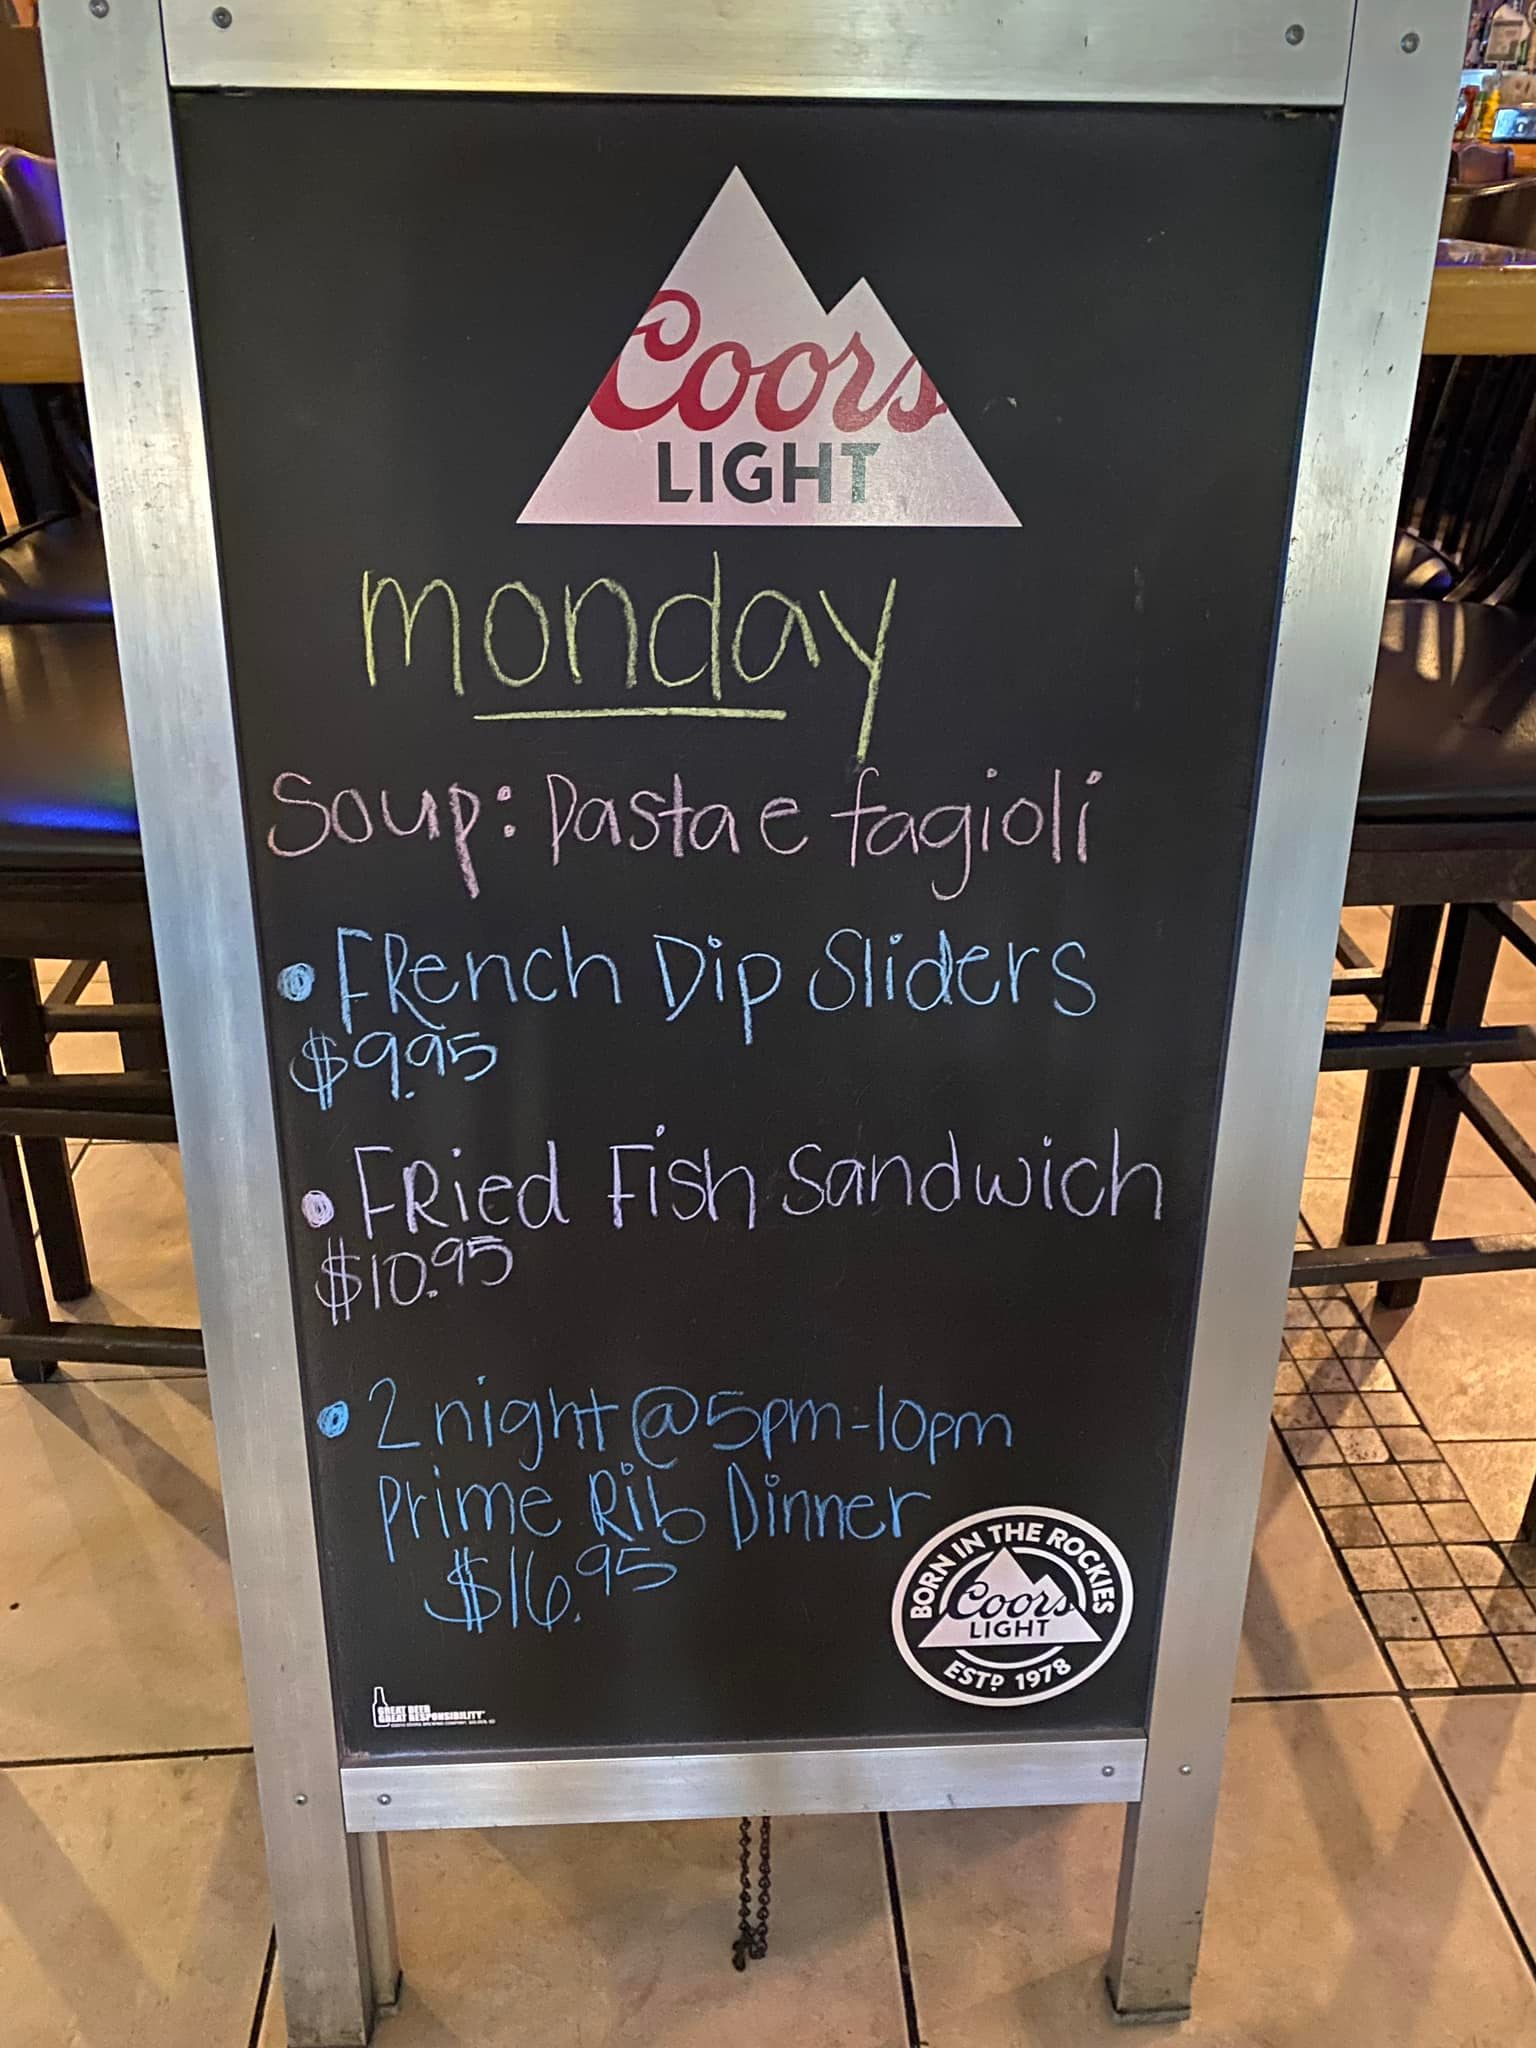 Coors
LIGHT
monday
Soup: Pasta e fagioli
• FRench Dip Sliders
$9.95
• FRied Fish Sandwich
$10.95
• 2night @ 5pm-10pm
Prime Rib Dinner
$16.95
BORN IN THE ROCKIES
Coors
LIGHT
ESTD 1978
GREAT BEER
GREAT RESPONSIBILITY